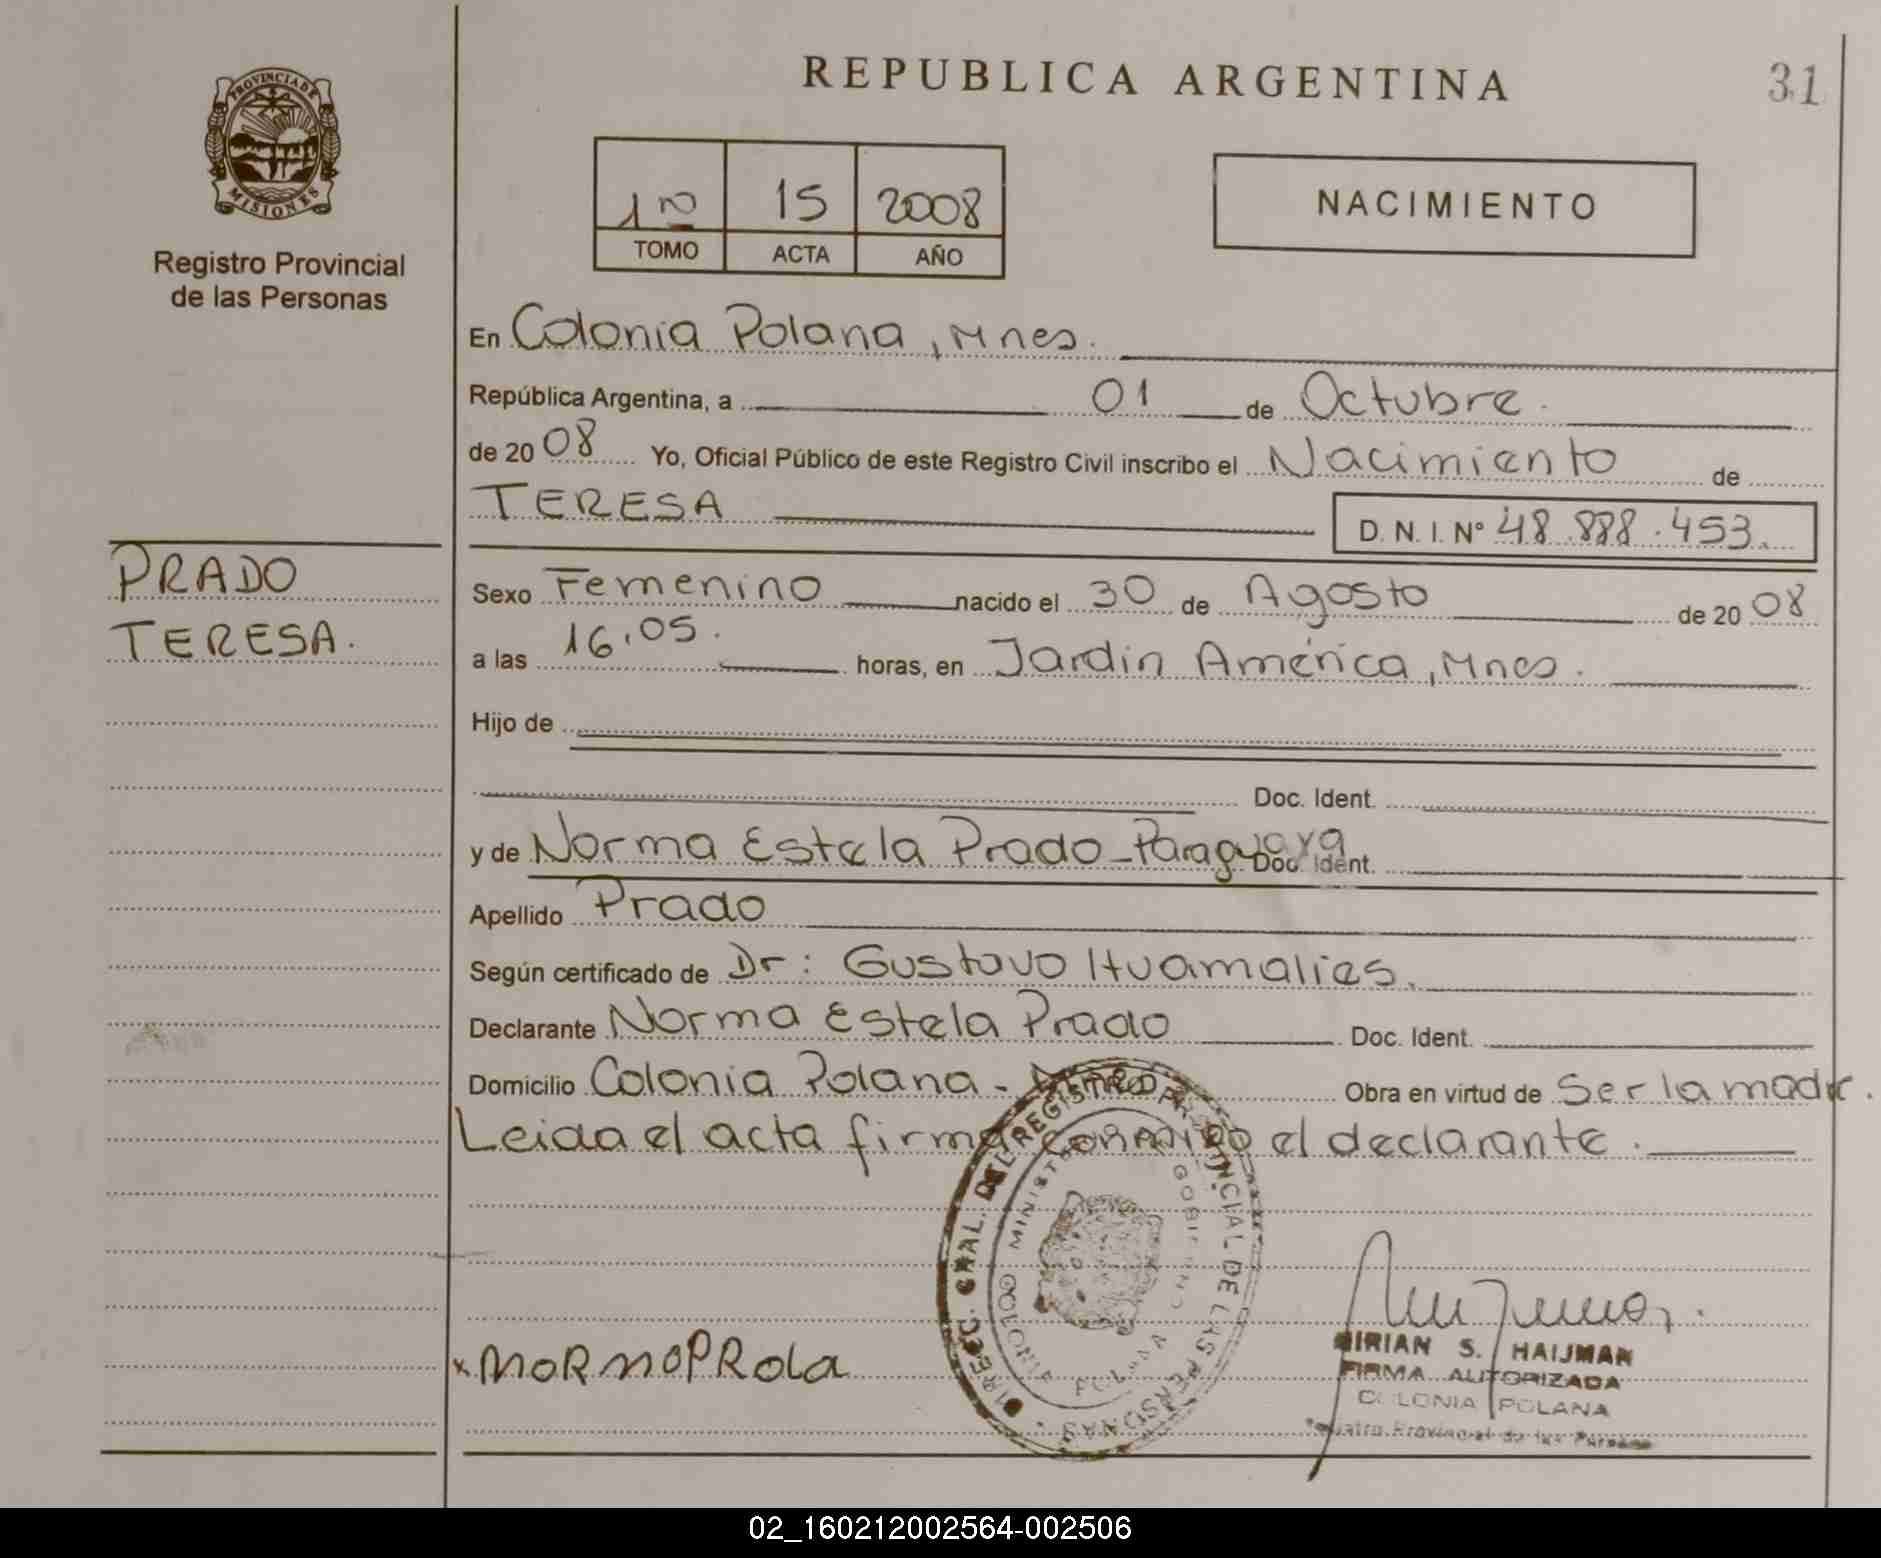 REPUBLICA ARGENTINA
31
PROVINCIA DE
MISIONES
Registro Provincial
de las Personas
1º 15 2008
TOMO ACTA AÑO
NACIMIENTO
En Colonia Polana, Mnes.
República Argentina, a 01 de Octubre.
de 20 08 Yo, Oficial Público de este Registro Civil inscribo el Nacimiento de
TERESA D. N. I. Nº 48.888.453.
PRADO
TERESA.
Sexo Femenino nacido el 30 de Agosto de 20 08
a las 16,05. horas, en Jardin América, Mnes.
Hijo de
Doc. Ident.
y de Norma Estela Prado - Paraguaya Doc. Ident.
Apellido Prado
Según certificado de Dr: Gustavo Huamalies.
Declarante Norma Estela Prado Doc. Ident.
Domicilio Colonia Polana - Obra en virtud de Ser la madre.
Leida el acta firma conmigo el declarante.
DIREC. GRAL. DEL REGISTRO PROVINCIAL DE LAS PERSONAS
MINISTERIO GOBIERNO
POLANA
x MORMOPROla
MIRIAN S. HAIJMAN
FIRMA AUTORIZADA
COLONIA POLANA
Registro Provincial de las Personas
02_160212002564-002506